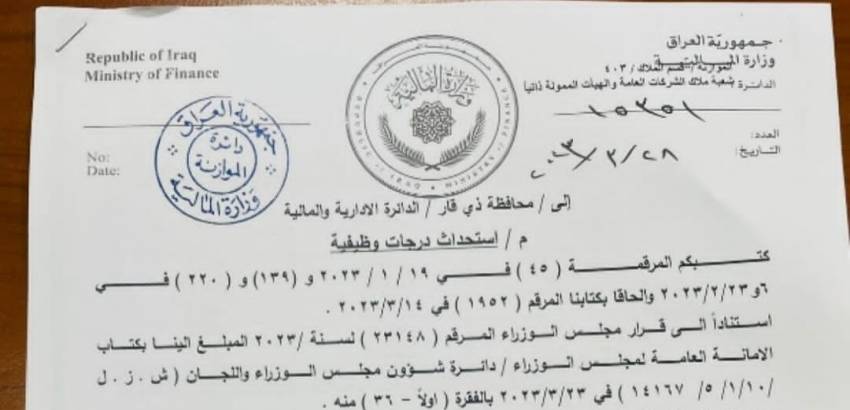 Republic of Iraq
Ministry of Finance
No:
Date:
جمهورية العراق
دائرة
الموازنة
وزارة المالية
وزارة المالية
جمهورية العراق
وزارة المالية
الموازنة / قسم الملاك / ٤٠٣
الدائرة شعبة ملاك الشركات العامة والهيأت الممولة ذاتياً
العدد:
١٥٣٥١
التاريخ:
٢٠٢٣/٣/٢٨
إلى / محافظة ذي قار / الدائرة الادارية والمالية
م / استحداث درجات وظيفية
كتبكم المرقمة ( ٤٥ ) في ١٩ / ١ / ٢٠٢٣ و (١٣٩) و ( ٢٢٠ ) في
٦و ٢٠٢٣/٢/٢٣ والحاقا بكتابنا المرقم ( ١٩٥٢ ) في ٢٠٢٣/٣/١٤ .
استناداً الى قرار مجلس الوزراء المرقم ( ٢٣١٤٨ ) لسنة /٢٠٢٣ المبلغ الينا بكتاب
الامانة العامة لمجلس الوزراء / دائرة شؤون مجلس الوزراء واللجان ( ش . ز . ل
/١٠/١/ ٥/ ١٤١٦٧ ) في ٢٠٢٣/٣/٢٣ بالفقرة ( اولاً – ٣٦ ) منه .